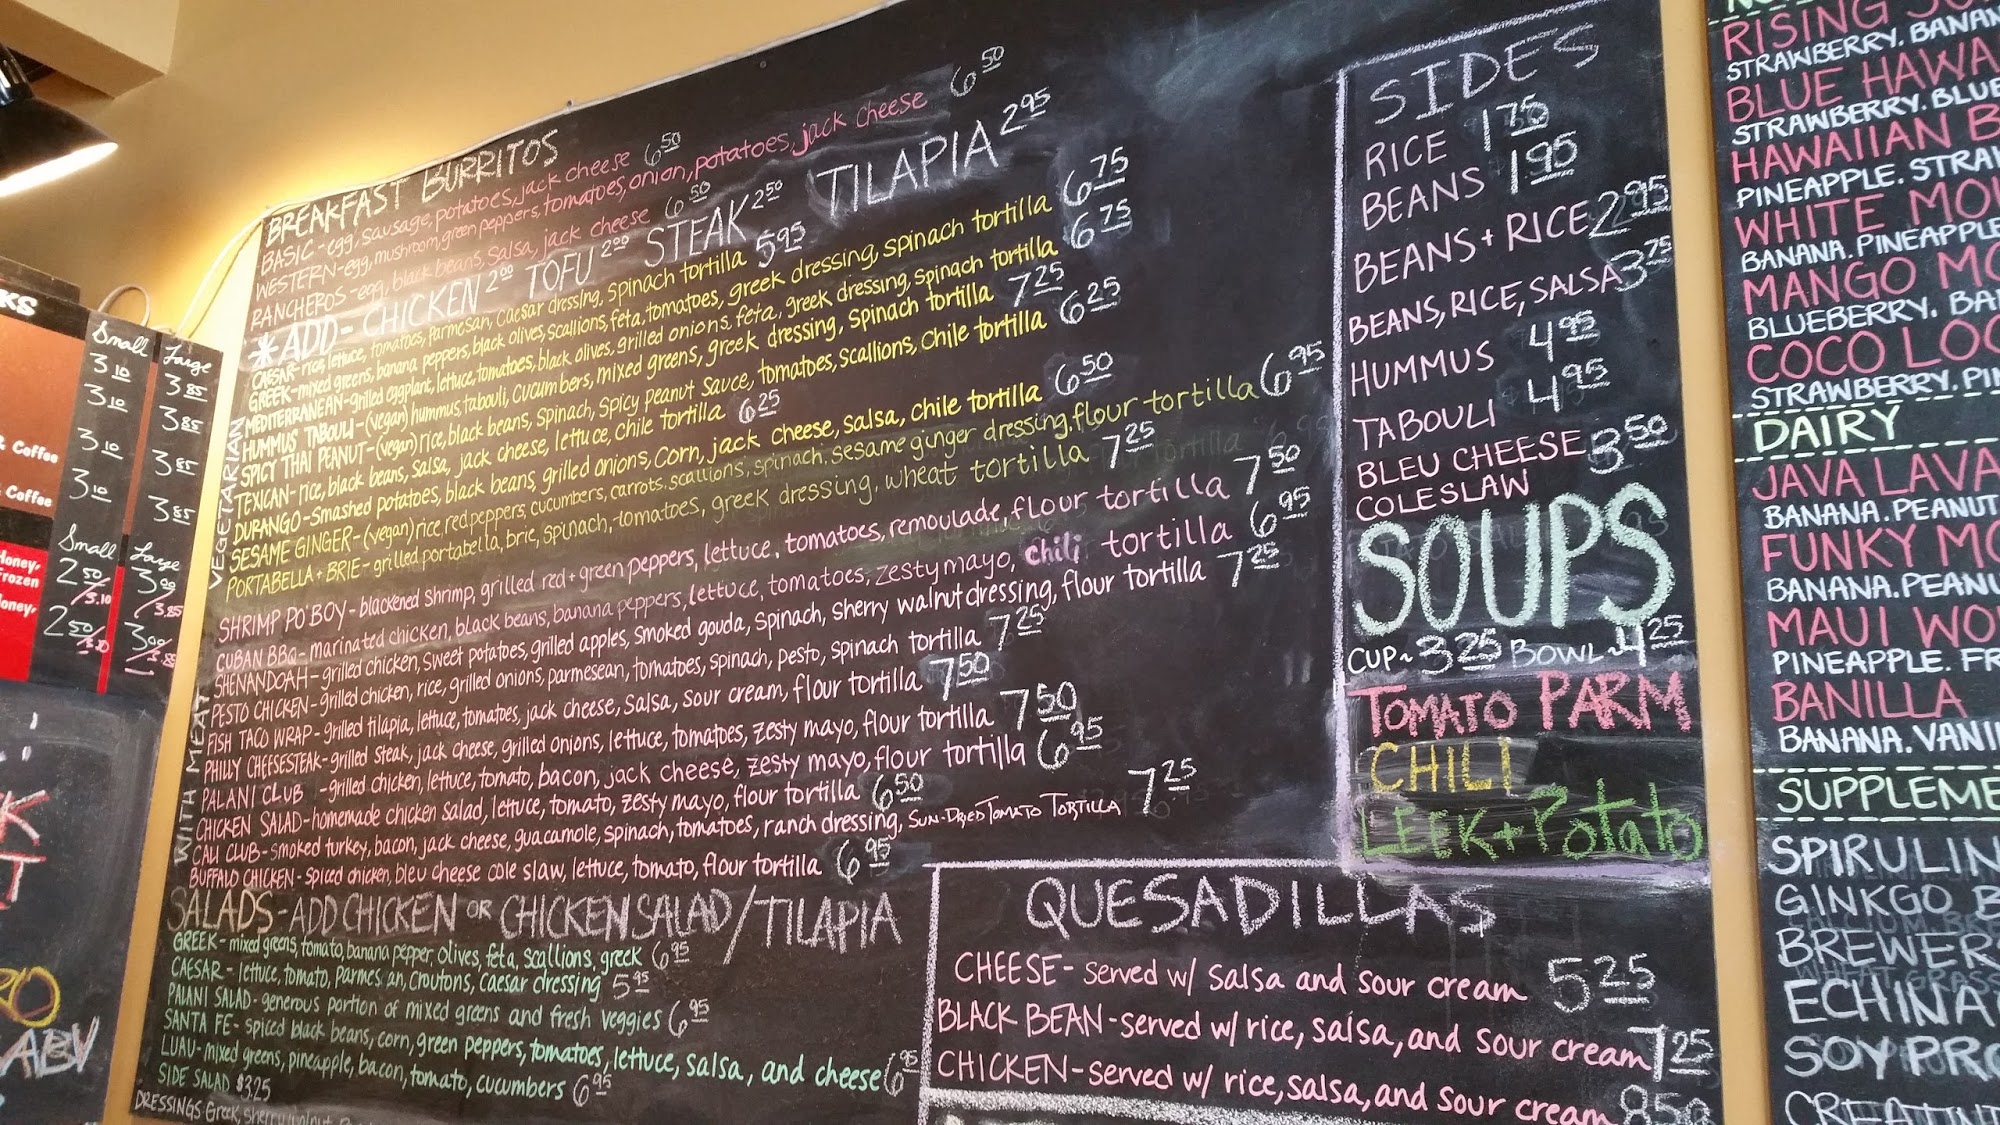 BREAKFAST BURRITOS
BASIC - egg, sausage, potatoes, jack cheese 6.50
WESTERN - egg, mushroom, green peppers, tomatoes, onion, potatoes, jack cheese 6.50
RANCHEROS - egg, black beans, salsa, jack cheese 6.50
*ADD - CHICKEN 2.00 TOFU 2.00 STEAK 2.50 TILAPIA 2.95
VEGETARIAN
CAESAR - rice, lettuce, tomatoes, parmesan, caesar dressing, spinach tortilla 5.95
GREEK - mixed greens, banana peppers, black olives, scallions, feta, tomatoes, greek dressing, spinach tortilla 6.75
MEDITERRANEAN - grilled eggplant, lettuce, tomatoes, black olives, grilled onions, feta, greek dressing, spinach tortilla 6.75
HUMMUS TABOULI - (vegan) hummus, tabouli, cucumbers, mixed greens, greek dressing, spinach tortilla 7.25
SPICY THAI PEANUT - (vegan) rice, black beans, spinach, spicy peanut sauce, tomatoes, scallions, chile tortilla 6.25
TEXICAN - rice, black beans, salsa, jack cheese, lettuce, chile tortilla 6.25
DURANGO - smashed potatoes, black beans, grilled onions, corn, jack cheese, salsa, chile tortilla 6.50
SESAME GINGER - (vegan) rice, red peppers, cucumbers, carrots, scallions, spinach, sesame ginger dressing, flour tortilla 6.95
PORTABELLA + BRIE - grilled portabella, brie, spinach, tomatoes, greek dressing, wheat tortilla 7.25
WITH MEAT
SHRIMP PO'BOY - blackened shrimp, grilled red + green peppers, lettuce, tomatoes, remoulade, flour tortilla 7.50
CUBAN BBQ - marinated chicken, black beans, banana peppers, lettuce, tomatoes, zesty mayo, chili tortilla 6.95
SHENANDOAH - grilled chicken, sweet potatoes, grilled apples, smoked gouda, spinach, sherry walnut dressing, flour tortilla 7.25
PESTO CHICKEN - grilled chicken, rice, grilled onions, parmesean, tomatoes, spinach, pesto, spinach tortilla 7.25
FISH TACO WRAP - grilled tilapia, lettuce, tomatoes, jack cheese, salsa, sour cream, flour tortilla 7.50
PHILLY CHEESESTEAK - grilled steak, jack cheese, grilled onions, lettuce, tomatoes, zesty mayo, flour tortilla 7.50
PALANI CLUB - grilled chicken, lettuce, tomato, bacon, jack cheese, zesty mayo, flour tortilla 6.95
CHICKEN SALAD - homemade chicken salad, lettuce, tomato, zesty mayo, flour tortilla 6.50
CALI CLUB - smoked turkey, bacon, jack cheese, guacamole, spinach, tomatoes, ranch dressing, SUN-DRIED TOMATO TORTILLA 7.25
BUFFALO CHICKEN - spiced chicken, bleu cheese cole slaw, lettuce, tomato, flour tortilla 6.95
SALADS - ADD CHICKEN OR CHICKEN SALAD/TILAPIA
GREEK - mixed greens, tomato, banana pepper, olives, feta, scallions, greek 6.95
CAESAR - lettuce, tomato, parmesan, croutons, caesar dressing 5.95
PALANI SALAD - generous portion of mixed greens and fresh veggies 6.95
SANTA FE - spiced black beans, corn, green peppers, tomatoes, lettuce, salsa, and cheese 6.95
LUAU - mixed greens, pineapple, bacon, tomato, cucumbers 6.95
SIDE SALAD $3.25
DRESSINGS: Greek, Sherry walnut
SIDES
RICE 1.75
BEANS 1.95
BEANS + RICE 2.95
BEANS, RICE, SALSA 3.75
HUMMUS 4.95
TABOULI 4.95
BLEU CHEESE 3.50
COLESLAW
SOUPS
CUP ~ 3.25 BOWL ~ 4.25
TOMATO PARM
CHILI
LEEK + Potato
QUESADILLAS
CHEESE - served w/ salsa and sour cream 5.25
BLACK BEAN - served w/ rice, salsa, and sour cream 7.25
CHICKEN - served w/ rice, salsa, and sour cream 8.50
RISING
STRAWBERRY. BANAN
BLUE HAWA
STRAWBERRY. BLUE
HAWAIIAN B
PINEAPPLE. STRA
WHITE MO
BANANA. PINEAPPLE
MANGO MO
BLUEBERRY. BA
COCO LOC
STRAWBERRY. PI
DAIRY
JAVA LAVA
BANANA. PEANUT
FUNKY MO
BANANA. PEANU
MAUI WO
PINEAPPLE. FR
BANILLA
BANANA. VANI
SUPPLEME
SPIRULIN
GINKGO B
BREWER
ECHINA
SOY PRO
CREATIN
KS
Small Large
3.10 3.85
3.10 3.85
& Coffee 3.10 3.85
& Coffee 3.10 3.85
Small Large
Honey, 2.50/3.10 3.00/3.85
Frozen
Honey, 2.50/3.10 3.00/3.85
ABV